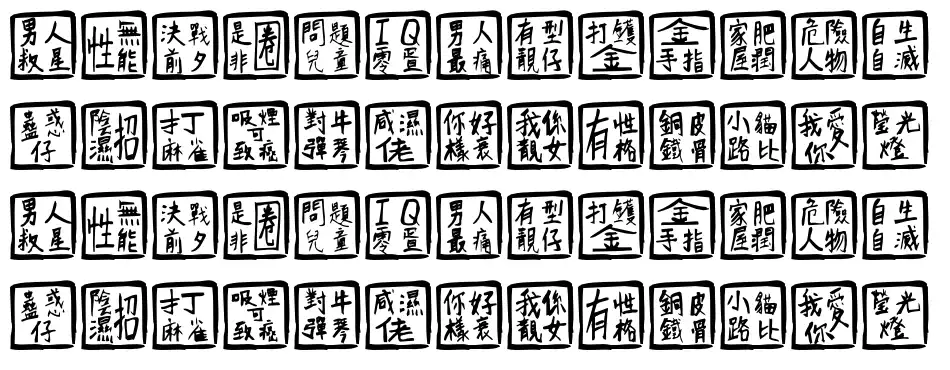 男人救星 性無能 決戰前夕 是非圈 問題兒童 IQ零蛋 男人最痛 有型靚仔 打鑊金 金手指 家肥屋潤 危險人物 自生自滅
蠱惑仔 陰濕招 打麻雀 吸煙可致癌 對牛彈琴 咸濕佬 你好樣衰 我係靚女 有性格 銅皮鐵骨 小貓路比 我愛你 螢光燈
男人救星 性無能 決戰前夕 是非圈 問題兒童 IQ零蛋 男人最痛 有型靚仔 打鑊金 金手指 家肥屋潤 危險人物 自生自滅
蠱惑仔 陰濕招 打麻雀 吸煙可致癌 對牛彈琴 咸濕佬 你好樣衰 我係靚女 有性格 銅皮鐵骨 小貓路比 我愛你 螢光燈